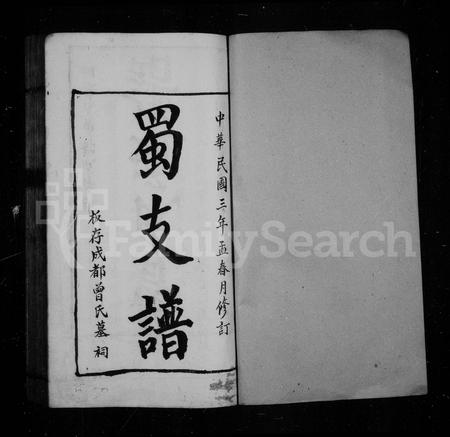 中華民國三年孟春月修訂
蜀支譜
板存成都曾氏墓祠
FamilySearch